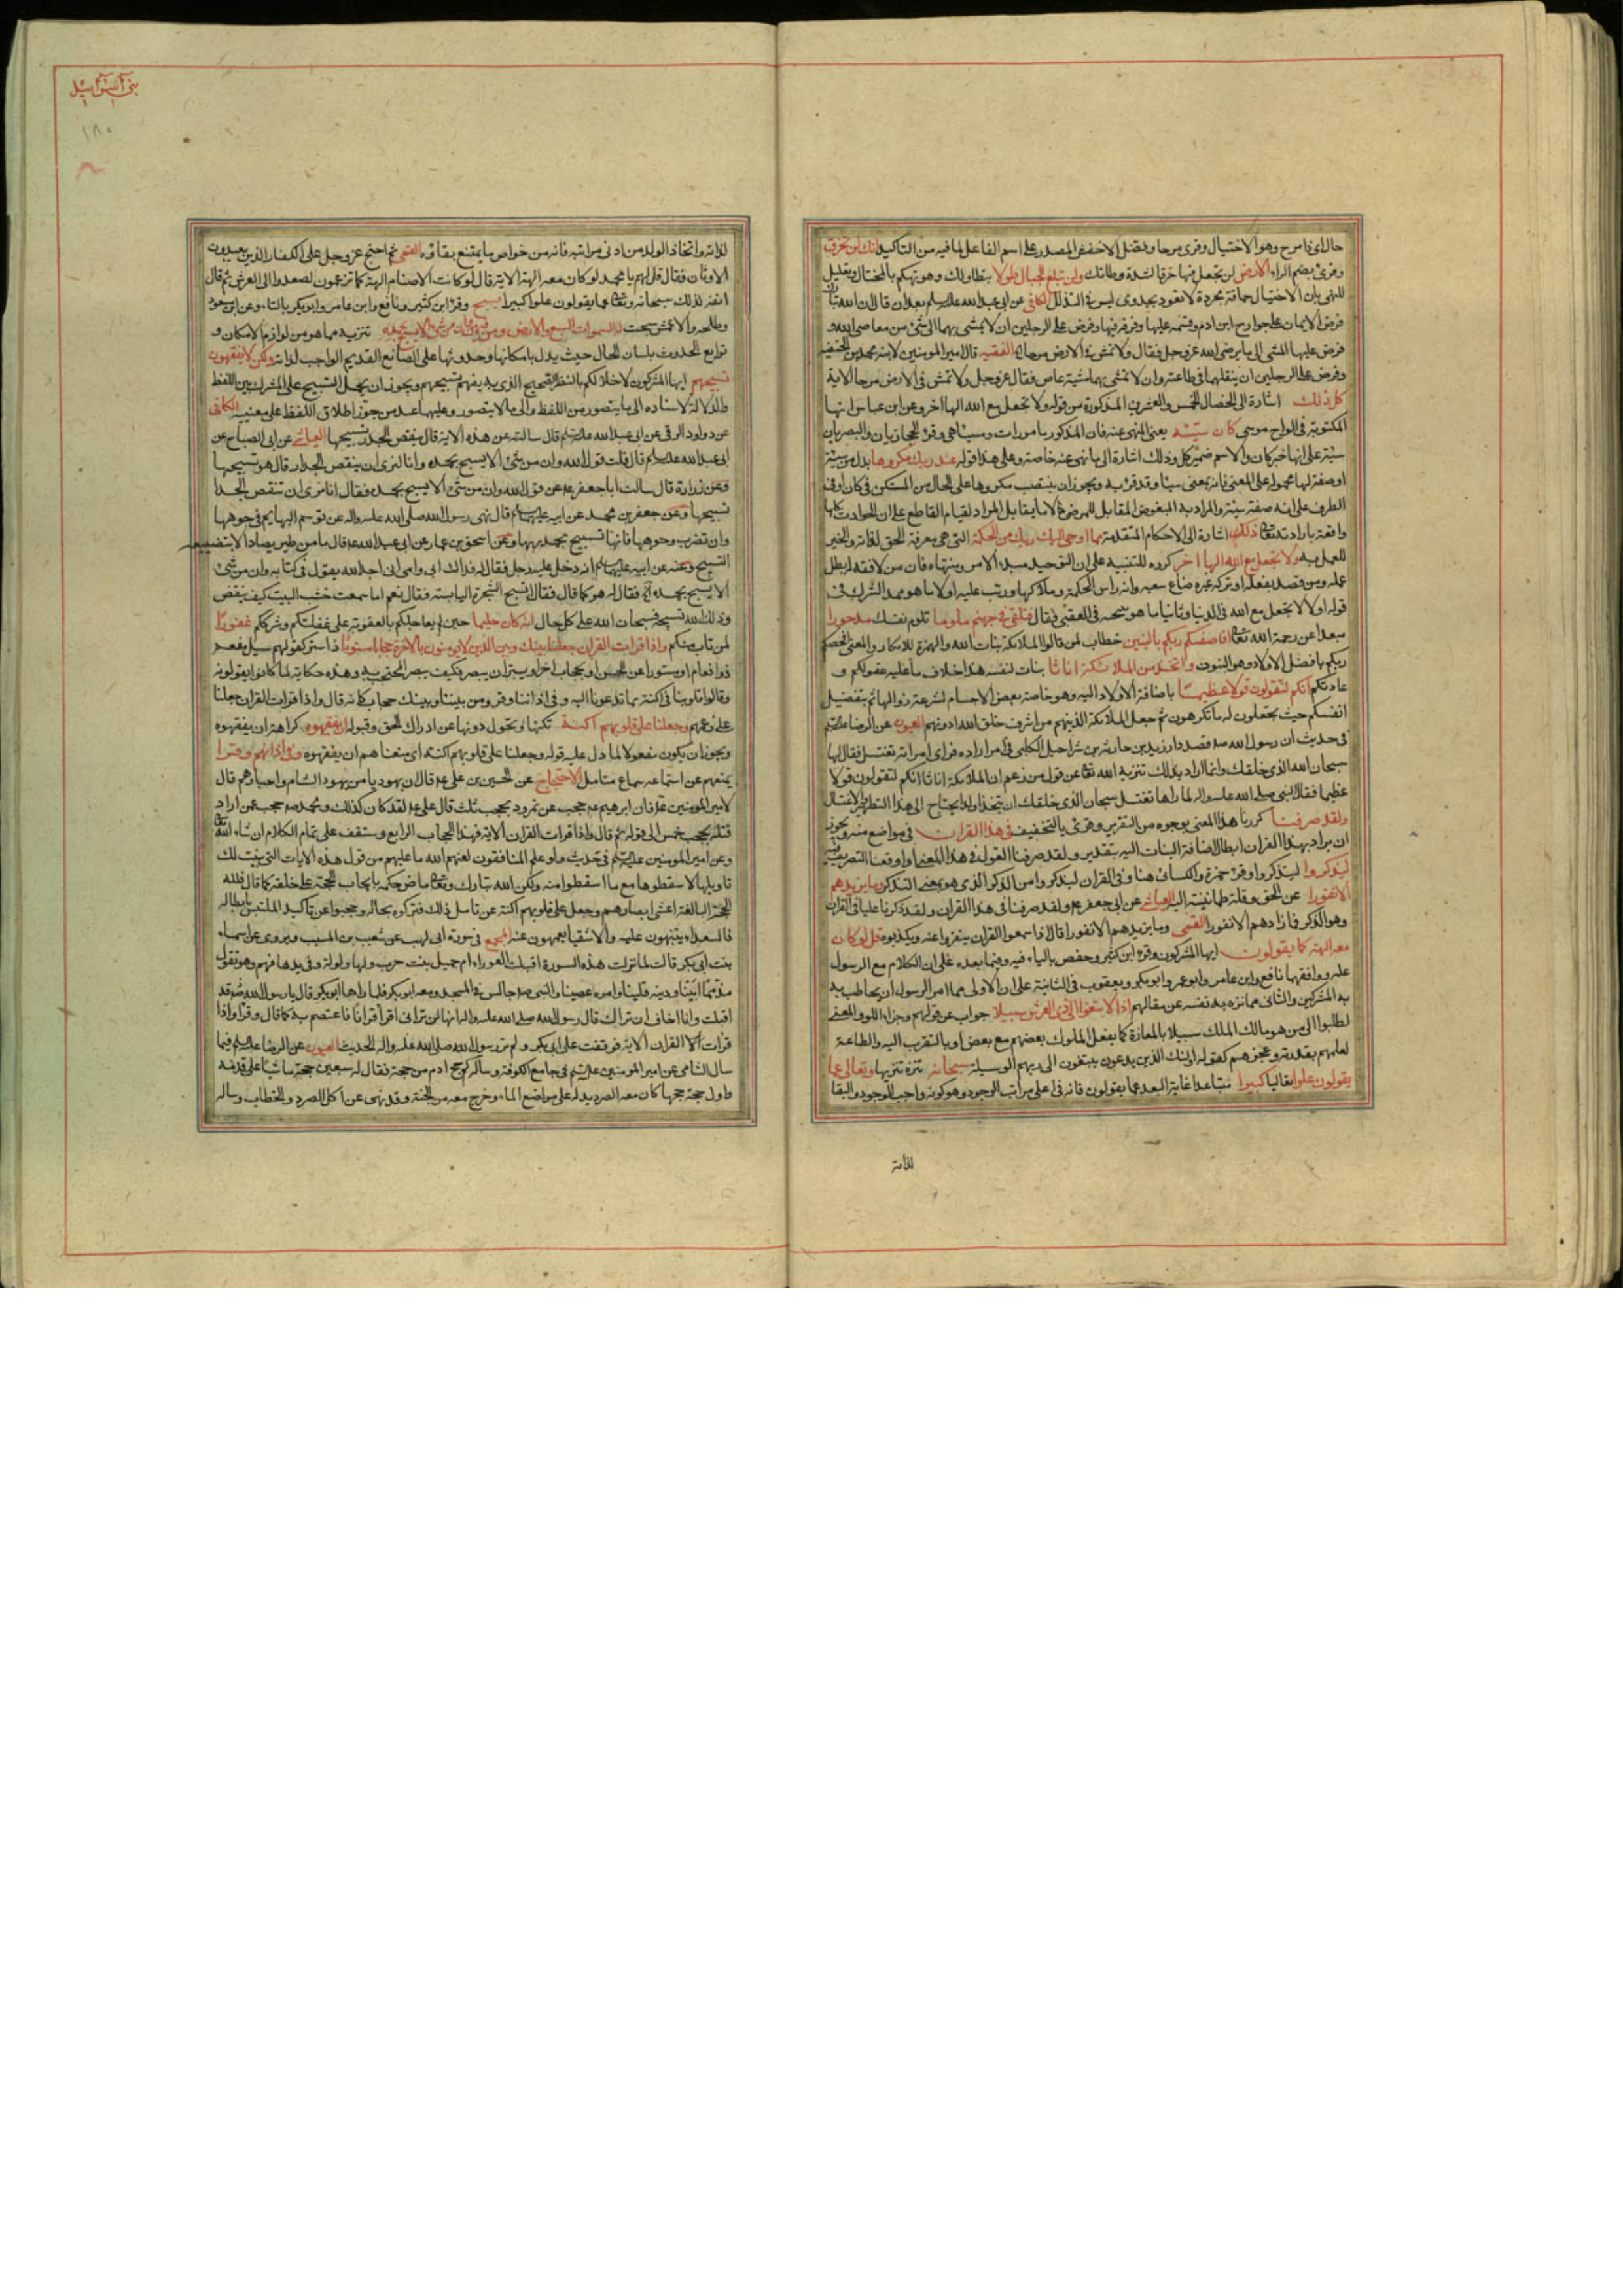 حال ای ذا مرح وهو الاختيال وقری مرحا وفضل الاخفش المصدر علی اسم الفاعل لما فيه من التاكيد انك لن تخرق
وقریٔ بضم الراء الارض لن تجعل فيها خرقا لشدة وطاتك ولن تبلغ الجبال طولا بتطاولك وهو تهكم بالمختال وتعليل
للنهی بان الاختيال حماقة مجردة لا تعود بجدوی ليس فی التذلل الكافی عن ابی عبد الله عليه السلم بعد ان قال ان الله تبا
فرض الايمان علی جوارح ابن ادم وقسمه عليها وفرقه فيها وفرض علی الرجلين ان لا يمشی بهما الی شئ من معاصی الله و
فرض عليهما المشی الی ما يرضی الله عز وجل فقال ولا تمش فی الارض مرحا الفقيه قال امير المومنين لابنه محمد بن الحنفية
وفرض علی الرجلين ان ينقلهما فی طاعته وان لا تمشی بهما مشية عاص فقال عز وجل ولا تمش فی الارض مرحا الاية
كل ذلك اشارة الی الخصال الخمس والعشرين المذكورة من قوله ولا تجعل مع الله الها اخر وعن ابن عباس انها
المكتوبة فی الواح موسی كان سيئه يعنی المنهی عنه فان المذكور مامورات ومناهی وقرء الحجازيان والبصريان
سيئة علی انها خبر كان والاسم ضمير كل وذلك اشارة الی ما نهی عنه خاصة وعلی هذا قوله عند ربك مكروها بدل من سيئة
او صفة لها محمولة علی المعنی فانه بمعنی سيئا وقد قرئ به ويجوز ان ينتصب مكروها علی الحال من المستكن فی كان او فی
الظرف علی انه صفة سيئة والمراد به المبغوض المقابل للمرضی لا ما يقابل المراد لقيام القاطع علی ان الحوادث كلها
واقعة بارادته تعالی ذلك اشارة الی الاحكام المتقدمة مما اوحی اليك ربك من الحكمة التی هی معرفة الحق لذاته والخير
للعمل به ولا تجعل مع الله الها اخر كرره للتنبيه علی ان التوحيد مبدء الامر ومنتهاه فان من لا قصد له بطل
عمله ومن قصد بفعله او تركه غيره ضاع سعيه وانه راس الحكمة وملاكها ورتب عليه اولا ما هو عائد الشرك فی
قوله اولا لا تجعل مع الله فی الدنيا وثانيا ما هو نتيجته فی العقبی فقال فتلقی فی جهنم ملوما تلوم نفسك مدحورا
مبعدا عن رحمة الله تعالی افاصفيكم ربكم بالبنين خطاب لمن قالوا الملائكة بنات الله والهمزة للانكار والمعنی افخصكم
ربكم بافضل الاولاد وهو البنون واتخذ من الملائكة اناثا بنات لنفسه هذا خلاف ما عليه عقولكم و
عادتكم انكم لتقولون قولا عظيما باضافة الاولاد اليه وهو خاصة بعض الاجسام لسرعة زوالها ثم بتفضيل
انفسكم حيث تجعلون له ما تكرهون ثم جعل الملائكة الذين هم من اشرف خلق الله ادونهم العيون عن الرضا عليه السلم
فی حديث ان رسول الله قصد دار زيد بن حارثة بن شراحيل الكلبی فی امر اراده فرای امراته تغتسل فقال لها
سبحان الله الذی خلقك وانما اراد بذلك تنزيه الله تعالی عن قول من زعم ان الملائكة اناثا انكم لتقولون قولا
عظيما فقال النبی صلی الله عليه واله لما راها تغتسل سبحان الذی خلقك ان يتخذ ولدا يحتاج الی هذا التطهير والاغتسال
ولقد صرفنا كررنا هذا المعنی بوجوه من التقرير وقرئ بالتخفيف فی هذا القران فی مواضع منه ويجوز
ان يراد بهذا القران ابطال اضافة البنات اليه بتقدير ولقد صرفنا القول فی هذا المعنی او اوقعنا التصريف فيه
ليذكروا ليتذكروا وقرء حمزة والكسائی هنا وفی الفرقان ليذكروا من الذكر الذی هو بمعنی التذكر وما يزيدهم
الا نفورا عن الحق وقلة طمانينة اليه العياشی عن ابی جعفر ع ولقد صرفنا فی هذا القران ولقد ذكرنا عليا فی القران
وهو الذكر فما زادهم الا نفورا القمی وما يزيدهم الا نفورا قال اذا سمعوا القران ينفروا عنه ويكذبوه قل لو كان
معه الهة كما يقولون ايها المشركون وقرء ابن كثير وحفص بالياء فيه وفيما بعده علی ان الكلام مع الرسول
عليه ووافقهما نافع وابن عامر وابو عمرو وابو بكر ويعقوب فی الثانية علی ان الاولی مما امر الرسول ان يخاطب به
به المشركين والثانی مما نزه به نفسه عن مقالتهم اذا لابتغوا الی ذی العرش سبيلا جواب عن قولهم وجزاء للو والمعنی
لطلبوا الی من هو مالك الملك سبيلا بالمعازة كما يفعل الملوك بعضهم مع بعض او بالتقرب اليه والطاعة
لعلمهم بقدرته وعجزهم كقوله اولئك الذين يدعون يبتغون الی ربهم الوسيلة سبحانه تنزه تنزيها وتعالی عما
يقولون علوا تعاليا كبيرا متباعدا غاية البعد عما يقولون فانه فی اعلی مراتب الوجود وهو كونه واجب الوجود والبقا
لذاته
بنی اسرائیل
١٨٠
لذاته واتخاذ الولد من ادنی مراتبه فانه من خواص ما يمتنع بقاؤه القمی ثم احتج عز وجل علی الكفار الذين يعبدون
الاوثان فقال قل لهم يا محمد لو كان معه الهة الاية قال لو كانت الاصنام الهة كما تزعمون لصعدوا الی العرش ثم قال
انفة لذلك سبحانه وتعالی عما يقولون علوا كبيرا يسبح وقرء ابن كثير ونافع وابن عامر وابو بكر بالياء وعن ابن مسعود
وطلحة والاعمش سبحت له السموات السبع والارض ومن فيهن وان من شئ الا يسبح بحمده تنزيه مما هو من لوازم الامكان و
توابع الحدوث بلسان الحال حيث يدل بامكانها وحدوثها علی الصانع القديم الواجب لذاته ولكن لا يفقهون
تسبيحهم ايها المشركون لاخلالكم بالنظر الصحيح الذی به يفهم تسبيحهم ويجوز ان يحمل التسبيح علی المشترك بين اللفظ
والدلالة لاسناده الی ما يتصور من اللفظ والی ما لا يتصور وعليهما عند من جوز اطلاق اللفظ علی معنييه الكافی
عن داود الرقی عن ابی عبد الله عليه السلم قال سالته عن هذه الاية قال ينقض الجدار تسبيحها العياشی عن ابی الصباح عن
ابی عبد الله عليه السلم قال قلت قول الله وان من شئ الا يسبح بحمده وانا لنری ان ينقض الجدار قال هو تسبيحها
وعن زرارة قال سالت ابا جعفر ع عن قول الله وان من شئ الا يسبح بحمده فقال انا نری ان تنقض الجدا
تسبيحها وعن جعفر بن محمد عن ابيه عليهما السلم قال نهی رسول الله صلی الله عليه واله عن توسم البهايم فی وجوهها
وان تضرب وجوهها فانها تسبح بحمد ربها وعن اسحق بن عمار عن ابی عبد الله ع قال ما من طير يصاد الا بتضييعه
التسبيح وعنه عن ابيه عليهما السلم انه دخل عليه رجل فقال له فداك ابی وامی انی اجد الله يقول فی كتابه وان من شئ
الا يسبح بحمده فقال له هو كما قال فقال اتسبح الشجرة اليابسة فقال نعم اما سمعت خشب البيت كيف ينقض
وذلك لله تسبيحه فسبحان الله علی كل حال انه كان حليما حين لم يعاجلكم بالعقوبة علی غفلتكم وشرككم غفورا
لمن تاب منكم واذا قرات القران جعلنا بينك وبين الذين لا يومنون بالاخرة حجابا مستورا ذا ستر كقولهم سيل مفعم
ذو افعام او مستورا عن الحس او بحجاب اخر ويستران يبصر فكيف يبصر المحتجب به وهذه حكاية لما كانوا يقولونه
وقالوا قلوبنا فی اكنة مما تدعونا اليه وفی اذاننا وقر ومن بيننا وبينك حجاب كانه قال واذا قرات القران جعلنا
علی زعمهم وجعلنا علی قلوبهم اكنة تكنها وتحول دونها عن ادراك الحق وقبوله ان يفقهوه كراهة ان يفقهوه
ويجوز ان يكون مفعولا لما دل عليه قوله وجعلنا علی قلوبهم اكنة ای منعناهم ان يفقهوه وفی اذانهم وقرا
يمنعهم عن استماعه سماع متامل الاحتجاج عن الحسين بن علی ع قال ان يهوديا من يهود الشام واحبارهم قال
لامير المومنين ع فان ابرهيم ع حجب عن نمرود بحجب ثلث قال علی ع لقد كان كذلك ومحمد ص حجب عمن اراد
قتله بحجب خمس الی قوله ثم قال واذا قرات القران الاية فهذا الحجاب الرابع وستقف علی تمام الكلام ان شاء الله
وعن امير المومنين عليه السلم فی حديث ولو علم المنافقون لعنهم الله ما عليهم من قول هذه الايات التی بينت لك
تاويلها لاسقطوها مع ما اسقطوا منه ولكن الله تبارك وتعالی ماض حكمه بايجاب الحجة علی خلقه كما قال فلله
الحجة البالغة اغشی ابصارهم وجعل علی قلوبهم اكنة عن تامل ذلك فتركوه بحاله وحجبوا عن تاكيد الملتبس بابطاله
فالسعداء يتنبهون عليه والاشقيا يعمهون عنه المجمع فی سورة ابی لهب عن شعيب بن المسيب ويروی عن اسماء
بنت ابی بكر قالت لما نزلت هذه السورة اقبلت العوراء ام جميل بنت حرب ولها ولولة وفی يدها فهر وهو تقول
مذمما ابينا ودينه قلينا وامره عصينا والنبی ص جالس فی المسجد ومعه ابو بكر فلما راها ابو بكر قال يا رسول الله ص قد
اقبلت وانا اخاف ان تراك قال رسول الله صلی الله عليه واله انها لن ترانی اقرا قرانا فاعتصم به كما قال وقرا واذا
قرات القران الاية فوقفت علی ابی بكر ولم تر رسول الله صلی الله عليه واله الحديث العيون عن الرضا عليه السلم فيما
سال الشامی عن امير المومنين عليه السلم فی جامع الكوفة وساله كم حج ادم من حجة فقال له سبعين حجة ماشيا علی قدميه
واول حجة حجها كان معه الصرد يدله علی مواضع الماء وخرج معه من الجنة وقد نهی عن اكل الصرد والخطاف وساله